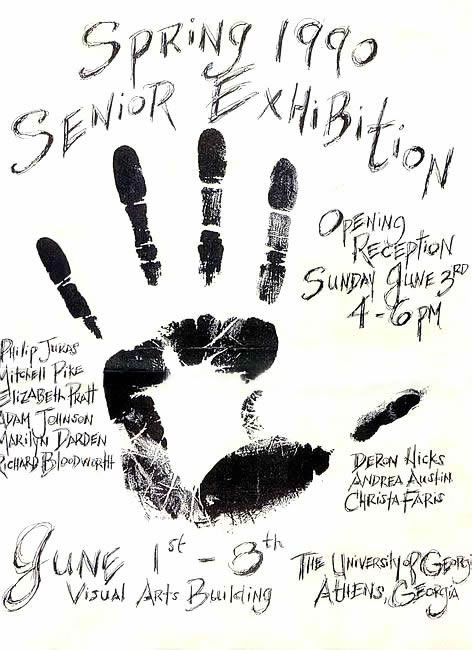 Spring 1990
Senior Exhibition
Opening
Reception
Sunday June 3RD
4-6 PM
Philip Juras
Mitchell Pike
Elizabeth Pratt
Adam Johnson
Marilyn Darden
Richard Bloodworth
Deron Hicks
Andrea Austin
Christa Faris
June 1st - 8th
Visual Arts Building
The University of Georgi
Athens, Georgia